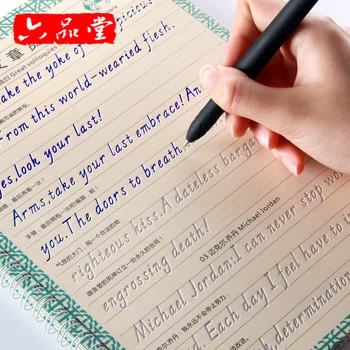 六品堂
Great soliloquies
ake the yoke of
From this world-wearied flesh.
es,look your last!
Arms,take your last embrace!An
手臂，最后拥抱一次吧！嘴唇，啊！
you.The doors to breath.
气息的大门，用一个合法的吻
righteous kiss.A dateless barga
engrossing death!
03 迈克尔·乔丹 Michael Jordan
Michael Jordan:I can never stop wor
. Each day I feel have to i
determination